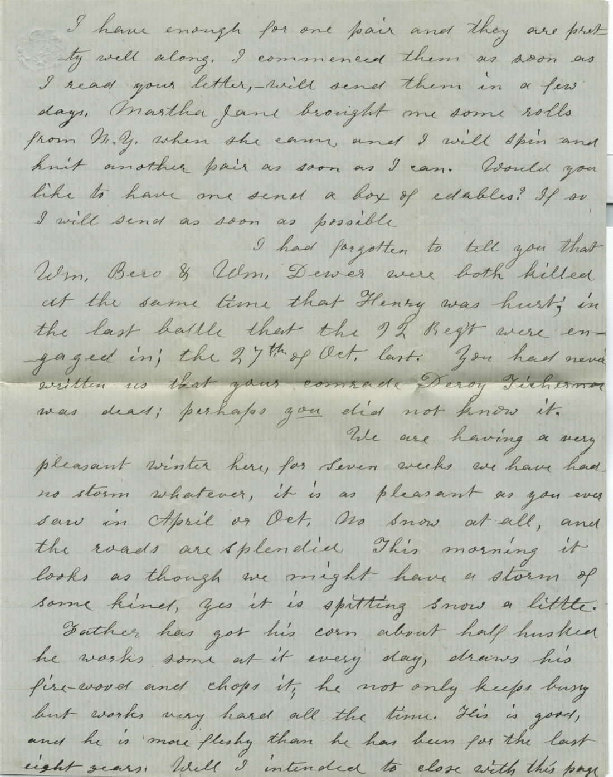 I have enough for one pair and they are pret
ty well along. I commenced them as soon as
I read your letter,-will send them in a few
days. Martha Jane brought me some rolls
from N.Y. when she came, and I will spin and
knit another pair as soon as I can. Would you
like to have me send a box of edables? If so
I will send as soon as possible
I had forgotten to tell you that
Wm. Bero & Wm. Dewer were both killed
at the same time that Henry was hurt; in
the last battle that the 72 Reg't were en-
-gaged in; the 27th of Oct. last. You had never
written us that your comrade Deroy Fisherman
was dead; perhaps you did not know it.
We are having a very
pleasant winter here, for seven weeks we have had
no storm whatever, it is as pleasant as you ever
saw in April or Oct. No snow at all, and
the roads are splendid This morning it
looks as though we might have a storm of
some kind, yes it is spitting snow a little.
Father has got his corn about half husked
he works some at it every day, draws his
fire-wood and chops it, he not only keeps busy
but works very hard all the time. His is good,
and he is more fleshy than he has been for the last
eight years. Well I intended to close with this page